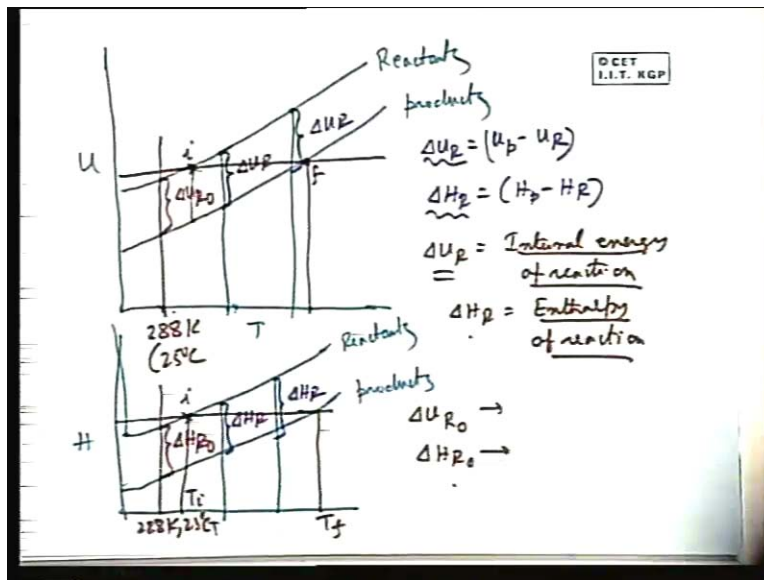 © CET
I.I.T. KGP
Reactants
products
U
i
ΔU_R0
ΔU_R
ΔU_R
f
288K
(25°C
T
ΔU_R = (U_P - U_R)
ΔH_R = (H_P - H_R)
ΔU_R = Internal energy
of reaction
ΔH_R = Enthalpy
of reaction
Reactants
products
H
i
ΔH_R0
ΔH_R
ΔH_R
T_i
288K, 25°C T
T_f
ΔU_R0 →
ΔH_R0 →